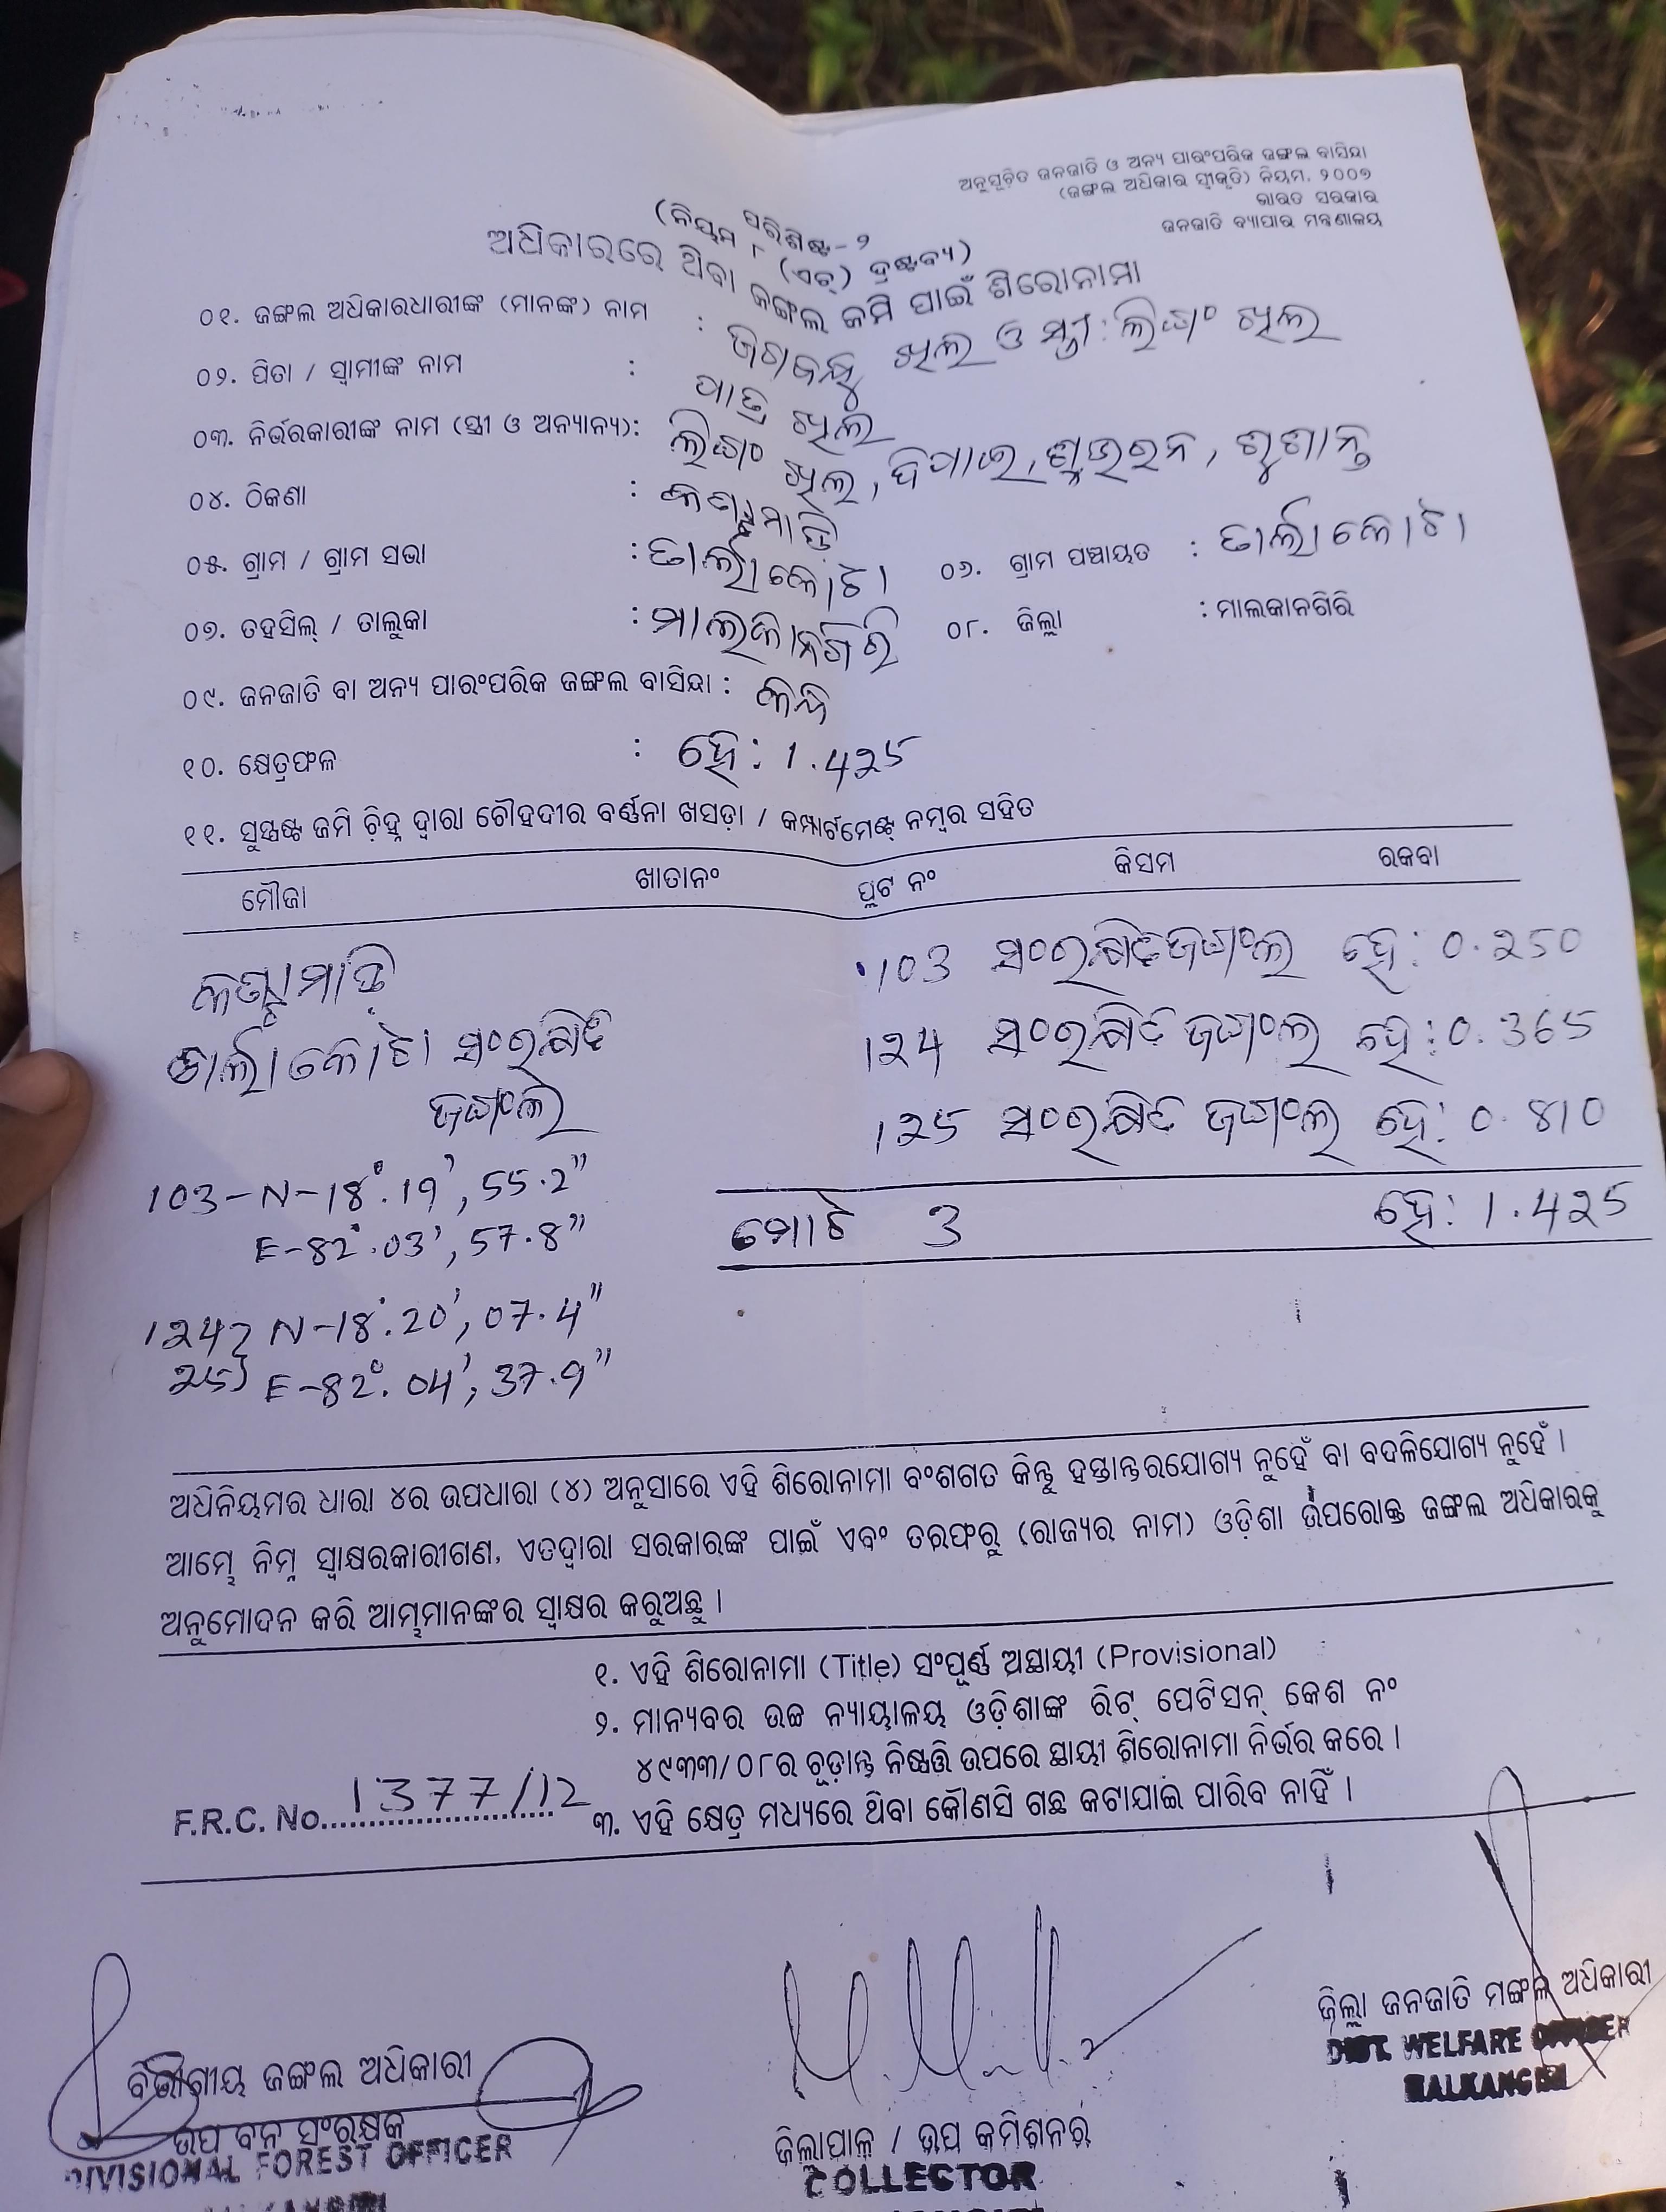 ଅନୁସୂଚିତ ଜନଜାତି ଓ ଅନ୍ୟ ପାରଂପରିକ ଜଙ୍ଗଲ ବାସିନ୍ଦା
(ଜଙ୍ଗଲ ଅଧିକାର ସ୍ୱୀକୃତି) ନିୟମ, ୨୦୦୭
ଭାରତ ସରକାର
ଜନଜାତି ବ୍ୟାପାର ମନ୍ତ୍ରଣାଳୟ
ପରିଶିଷ୍ଟ-୨
(ନିୟମ ୮ (ଏଚ୍) ଦ୍ରଷ୍ଟବ୍ୟ)
ଅଧିକାରରେ ଥିବା ଜଙ୍ଗଲ ଜମି ପାଇଁ ଶିରୋନାମା
୦୧. ଜଙ୍ଗଲ ଅଧିକାରଧାରୀଙ୍କ (ମାନଙ୍କ) ନାମ : ଜଗବନ୍ଧୁ ଖିଲ ଓ ସ୍ତ୍ରୀ: ଲିଙ୍ଗ ଖିଲ
୦୨. ପିତା / ସ୍ୱାମୀଙ୍କ ନାମ : ପାତ୍ର ଖିଲ
୦୩. ନିର୍ଭରକାରୀଙ୍କ ନାମ (ସ୍ତ୍ରୀ ଓ ଅନ୍ୟାନ୍ୟ): ଖିଲ,
୦୪. ଠିକଣା :
୦୫. ଗ୍ରାମ / ଗ୍ରାମ ସଭା : ତାର୍ଲାକୋଟା ୦୬. ଗ୍ରାମ ପଞ୍ଚାୟତ : ତାର୍ଲାକୋଟା
୦୭. ତହସିଲ୍ / ତାଲୁକା : ମାଲକାନଗିରି ୦୮. ଜିଲ୍ଲା : ମାଲକାନଗିରି
୦୯. ଜନଜାତି ବା ଅନ୍ୟ ପାରଂପରିକ ଜଙ୍ଗଲ ବାସିନ୍ଦା : କନ୍ଧ
୧୦. କ୍ଷେତ୍ରଫଳ : ହେ: 1.425
୧୧. ସୁସ୍ପଷ୍ଟ ଜମି ଚିହ୍ନ ଦ୍ୱାରା ଚୌହଦୀର ବର୍ଣ୍ଣନା ଖସଡ଼ା / କମ୍ପାର୍ଟମେଣ୍ଟ ନମ୍ବର ସହିତ
ମୌଜା ଖାତାନଂ ପ୍ଲଟ ନଂ କିସମ ରକବା
103 ସଂରକ୍ଷିତ ଜଙ୍ଗଲ ହେ: 0.250
ତାର୍ଲାକୋଟା ସଂରକ୍ଷିତ 124 ସଂରକ୍ଷିତ ଜଙ୍ଗଲ ହେ: 0.365
ଜଙ୍ଗଲ 125 ସଂରକ୍ଷିତ ଜଙ୍ଗଲ ହେ: 0.810
103-N-18°.19', 55.2"
E-82°.03', 57.8" ମୋଟ 3 ହେ: 1.425
124} N-18°.20', 07.4"
25} E-82°.04', 37.9"
ଅଧିନିୟମର ଧାରା ୪ର ଉପଧାରା (୪) ଅନୁସାରେ ଏହି ଶିରୋନାମା ବଂଶଗତ କିନ୍ତୁ ହସ୍ତାନ୍ତରଯୋଗ୍ୟ ନୁହେଁ ବା ବଦଳିଯୋଗ୍ୟ ନୁହେଁ ।
ଆମ୍ଭେ ନିମ୍ନ ସ୍ୱାକ୍ଷରକାରୀଗଣ, ଏତଦ୍ୱାରା ସରକାରଙ୍କ ପାଇଁ ଏବଂ ତରଫରୁ (ରାଜ୍ୟର ନାମ) ଓଡ଼ିଶା ଉପରୋକ୍ତ ଜଙ୍ଗଲ ଅଧିକାରକୁ
ଅନୁମୋଦନ କରି ଆମ୍ଭମାନଙ୍କର ସ୍ୱାକ୍ଷର କରୁଅଛୁ ।
୧. ଏହି ଶିରୋନାମା (Title) ସଂପୂର୍ଣ୍ଣ ଅସ୍ଥାୟୀ (Provisional)
୨. ମାନ୍ୟବର ଉଚ୍ଚ ନ୍ୟାୟାଳୟ ଓଡ଼ିଶାଙ୍କ ରିଟ୍ ପେଟିସନ୍ କେଶ ନଂ
୪୯୩୩/୦୮ର ଚୂଡ଼ାନ୍ତ ନିଷ୍ପତ୍ତି ଉପରେ ସ୍ଥାୟୀ ଶିରୋନାମା ନିର୍ଭର କରେ ।
F.R.C. No. 1377/12 ୩. ଏହି କ୍ଷେତ୍ର ମଧ୍ୟରେ ଥିବା କୌଣସି ଗଛ କଟାଯାଇ ପାରିବ ନାହିଁ ।
ଜିଲ୍ଲା ଜନଜାତି ମଙ୍ଗଳ ଅଧିକାରୀ
DIST. WELFARE OFFICER
MALKANGIRI
ବିଭାଗୀୟ ଜଙ୍ଗଲ ଅଧିକାରୀ
ଉପ ବନ ସଂରକ୍ଷକ
DIVISIONAL FOREST OFFICER
MALKANGIRI
ଜିଲ୍ଲାପାଳ / ଉପ କମିଶନର
COLLECTOR